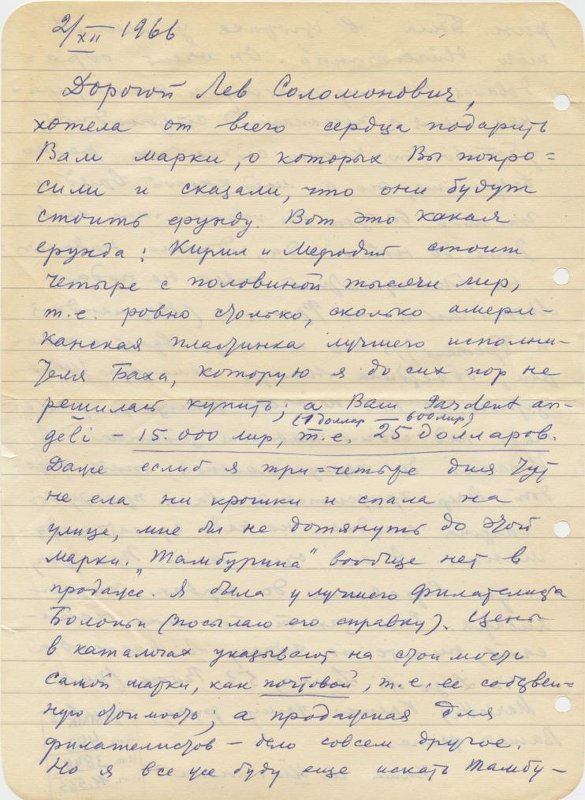 2/XII 1966
Дорогой Лев Соломонович,
хотела от всего сердца подарить
Вам марки, о которых Вы попро=
сили и сказали, что они будут
стоить ерунду. Вот это какая
ерунда: Кирил и Мефодий стоит
четыре с половиной тысячи лир,
т.е. ровно столько, сколько амери-
канская пластинка лучшего исполни-
теля Баха, которую я до сих пор не
решилась купить; а Ваш Pardent an-
(1 доллар — 600 лир)
geli — 15.000 лир, т.е. 25 долларов.
Даже еслиб я три=четыре дня тут
не ела ни крошки и спала на
улице, мне бы не дотянуть до этой
марки. „Тамбурина" вообще нет в
продаже. Я была у лучшего филателиста
Болоньи (посылаю его справку). Цены
в каталогах указывают на стоимость
самой марки, как почтовой, т.е. ее собствен-
ную стоимость; а продажная для
филателистов — дело совсем другое.
Но я все же буду еще искать Тамбу-